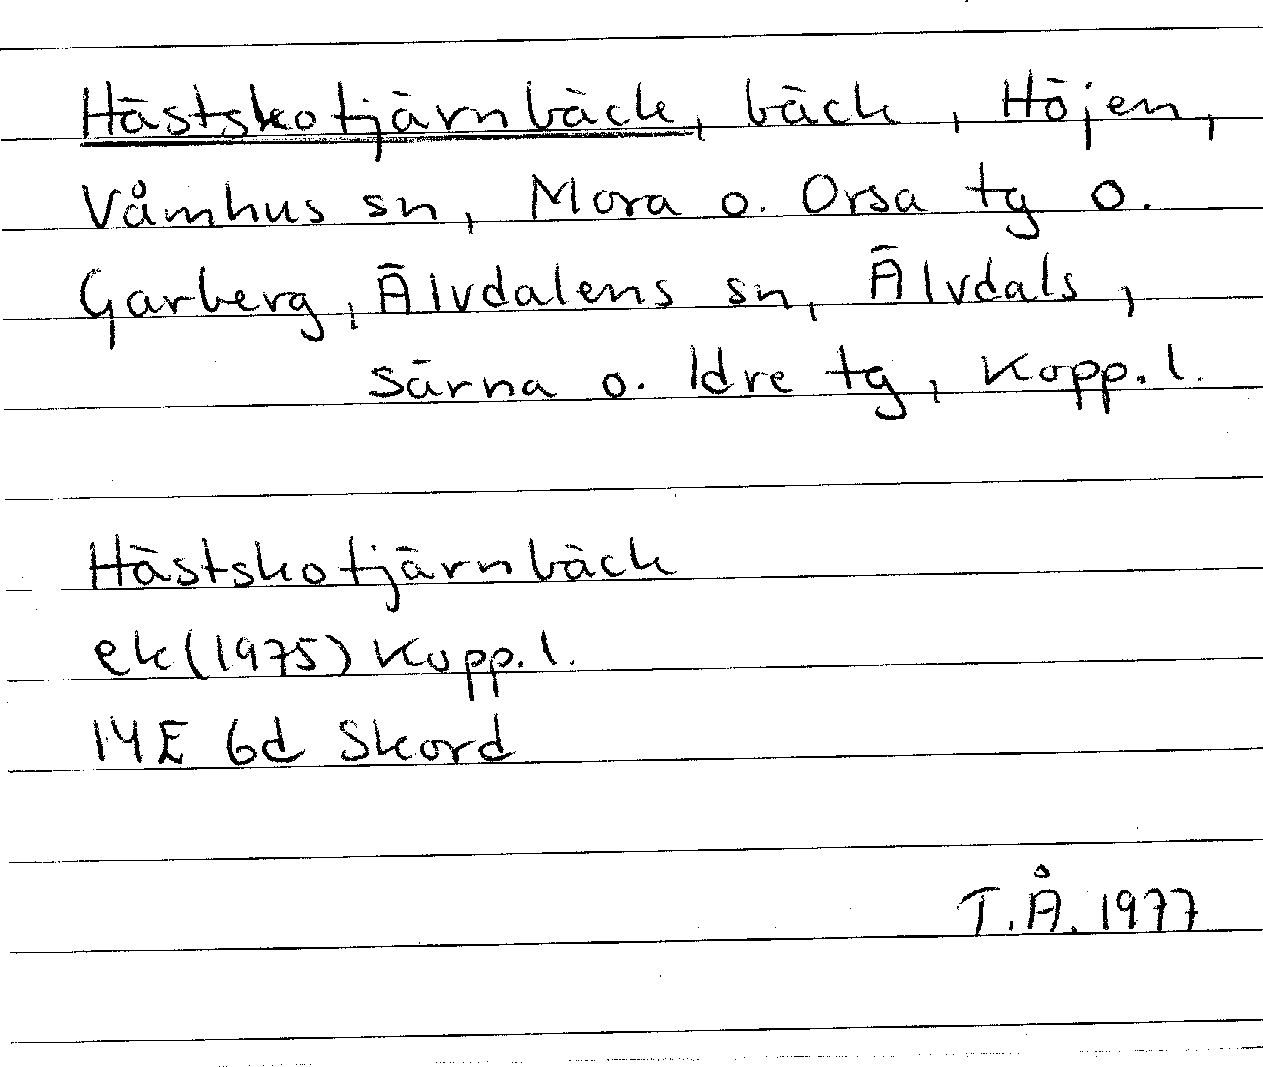 Hästskotjärnbäck, bäck, Höjen,
Våmhus sn, Mora o. Orsa tg o.
Garberg, Älvdalens sn, Älvdals,
Särna o. Idre tg, Kopp. l.
Hästskotjärnbäck
ek (1975) Kopp. l.
14E 6d Skord
T.Å. 1977